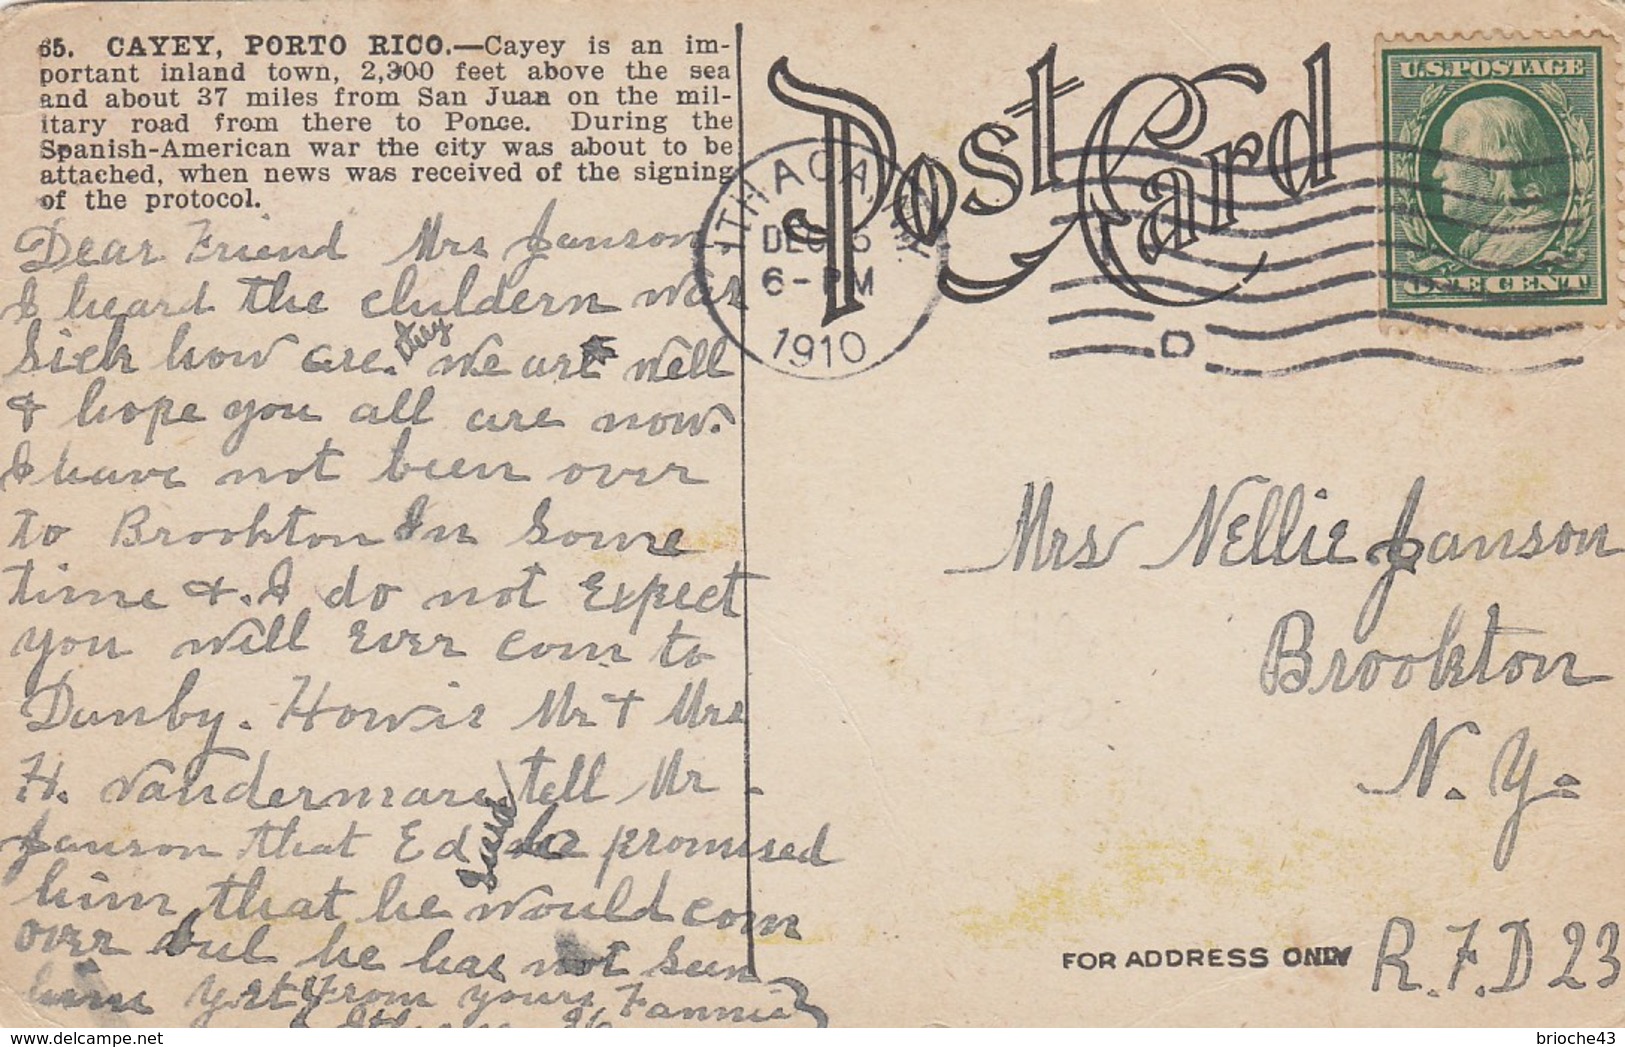 65. CAYEY, PORTO RICO.—Cayey is an im-
portant inland town, 2,300 feet above the sea
and about 37 miles from San Juan on the mil-
itary road from there to Ponce. During the
Spanish-American war the city was about to be
attached, when news was received of the signing
of the protocol.
Post Card
U.S. POSTAGE
ONE CENT
ITHACA, N.Y.
DEC
6-PM
1910
D
Dear Friend Mrs Janson.
I heard the childern was
Sick how are they. We are well
& hope you all are now.
I have not been over
to Brookton In Some
time &. I do not Expect
you will Ever com to
Danby. How is Mr + Mrs
H. Vandermark tell Mr
Janson that Ed said he promised
him that he would com
over but he has not Seen
him yet From yours Fannie
Mrs Nellie Janson
Brookton
N. Y.
FOR ADDRESS ONLY
R.F.D 23
brioche43